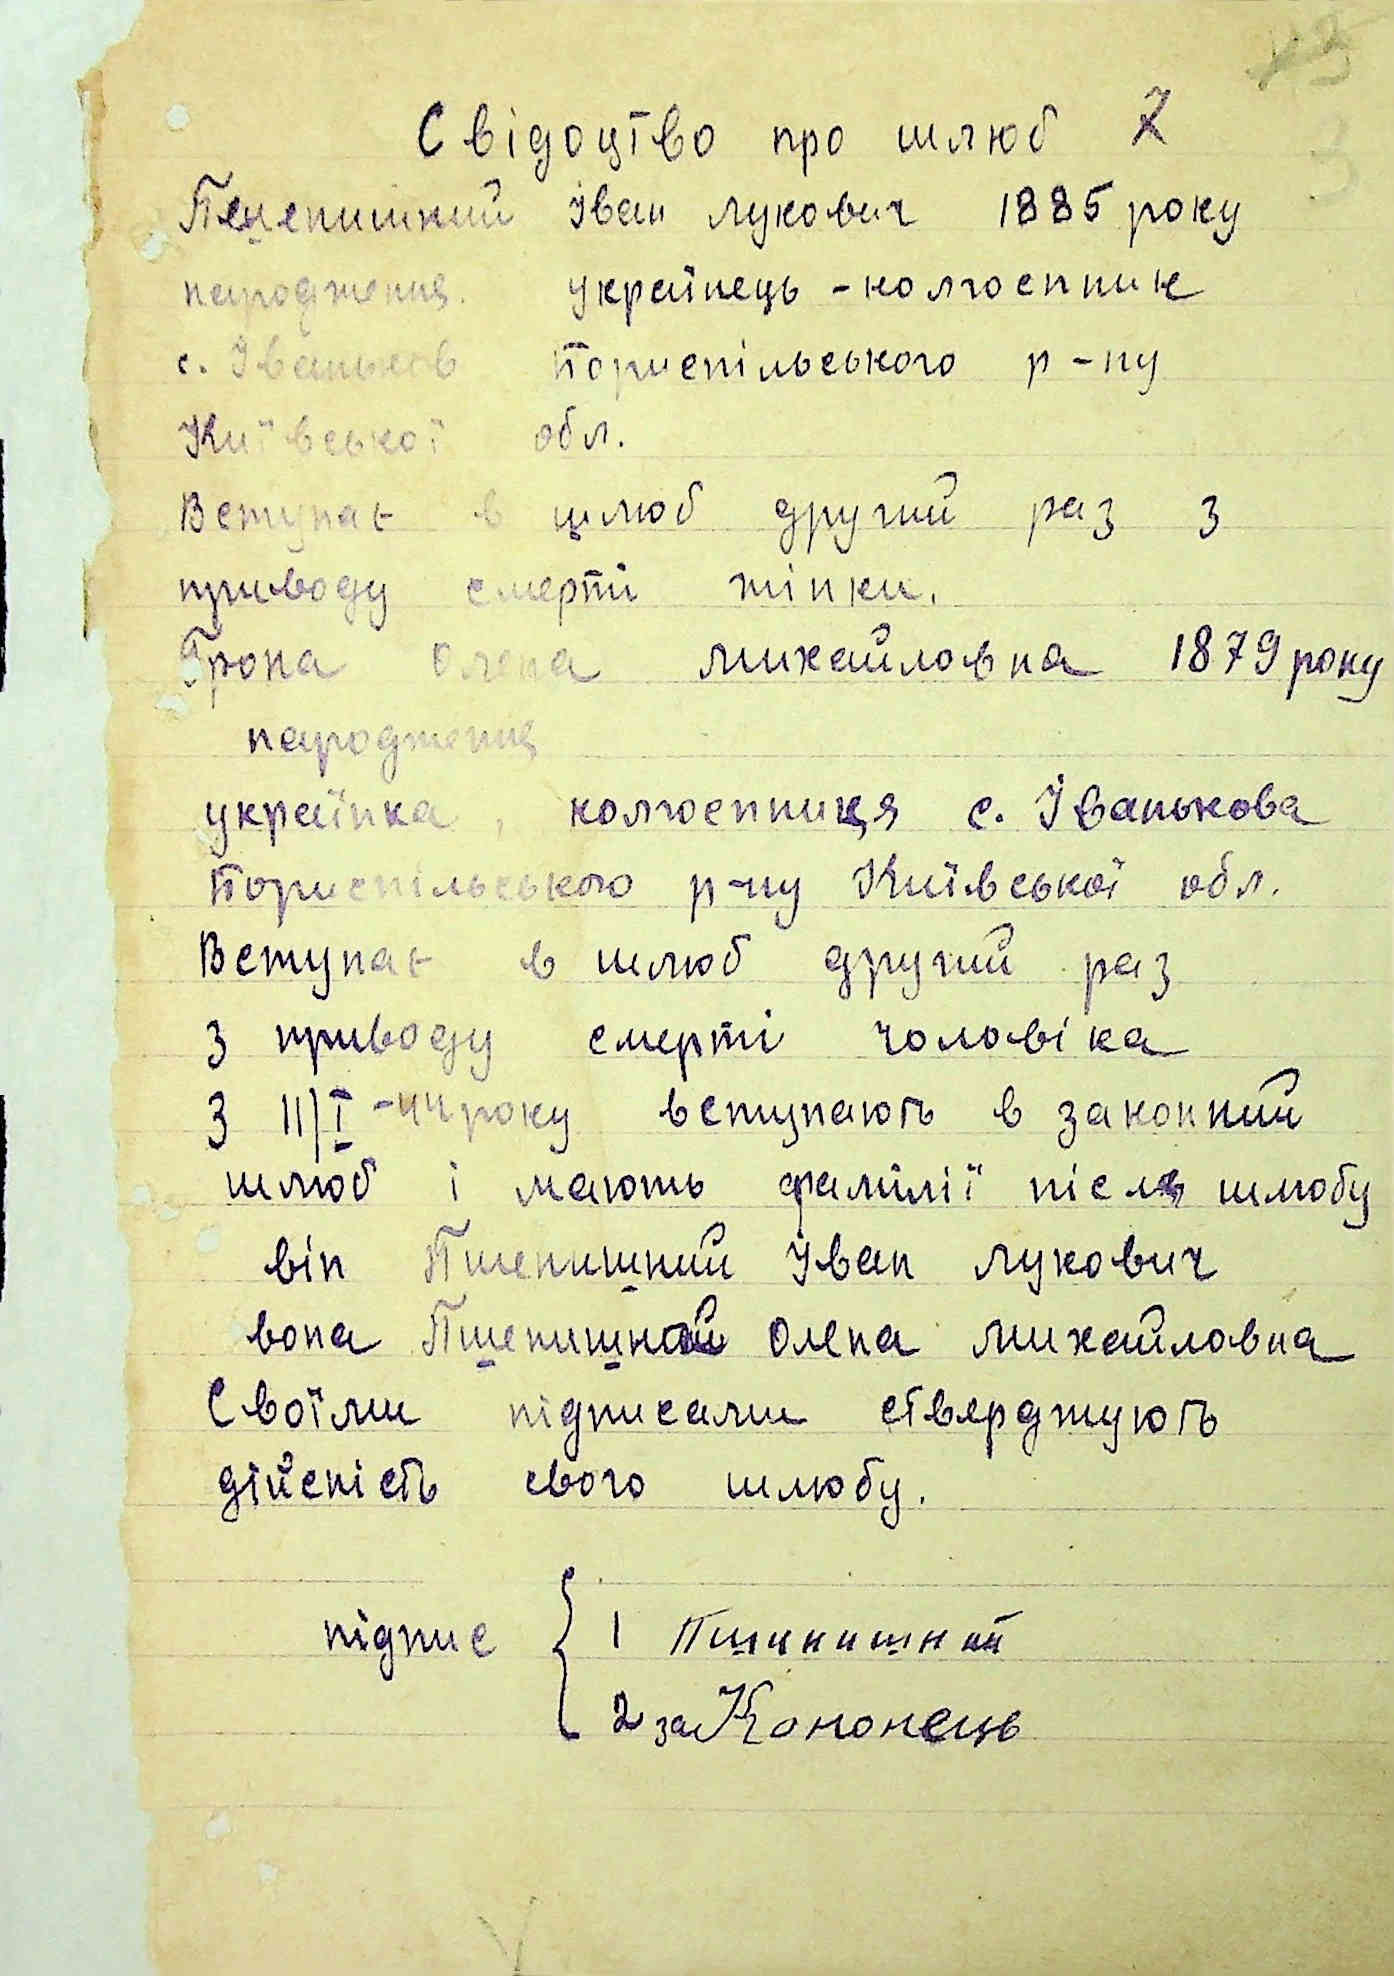 Свідоцтво про шлюб 7
Пшенишний Іван Лукович 1885 року
народження. українець - колгоспник
с. Іваньков Бориспільського р-ну
Київської обл.
Вступає в шлюб другий раз з
приводу смерті жінки.
Грона Олена Михайловна 1879 року
народження
українка, колгоспниця с. Іванькова
Бориспільського р-ну Київської обл.
Вступає в шлюб другий раз
з приводу смерті чоловіка
З 11/I-44 року вступають в законний
шлюб і мають фамілії після шлюбу
він Пшенишний Іван Лукович
вона Пшенишна Олена Михайловна
Своїми підписами стверджують
дійсність свого шлюбу.
підпис { 1 Пшенишний
2 за Кононець